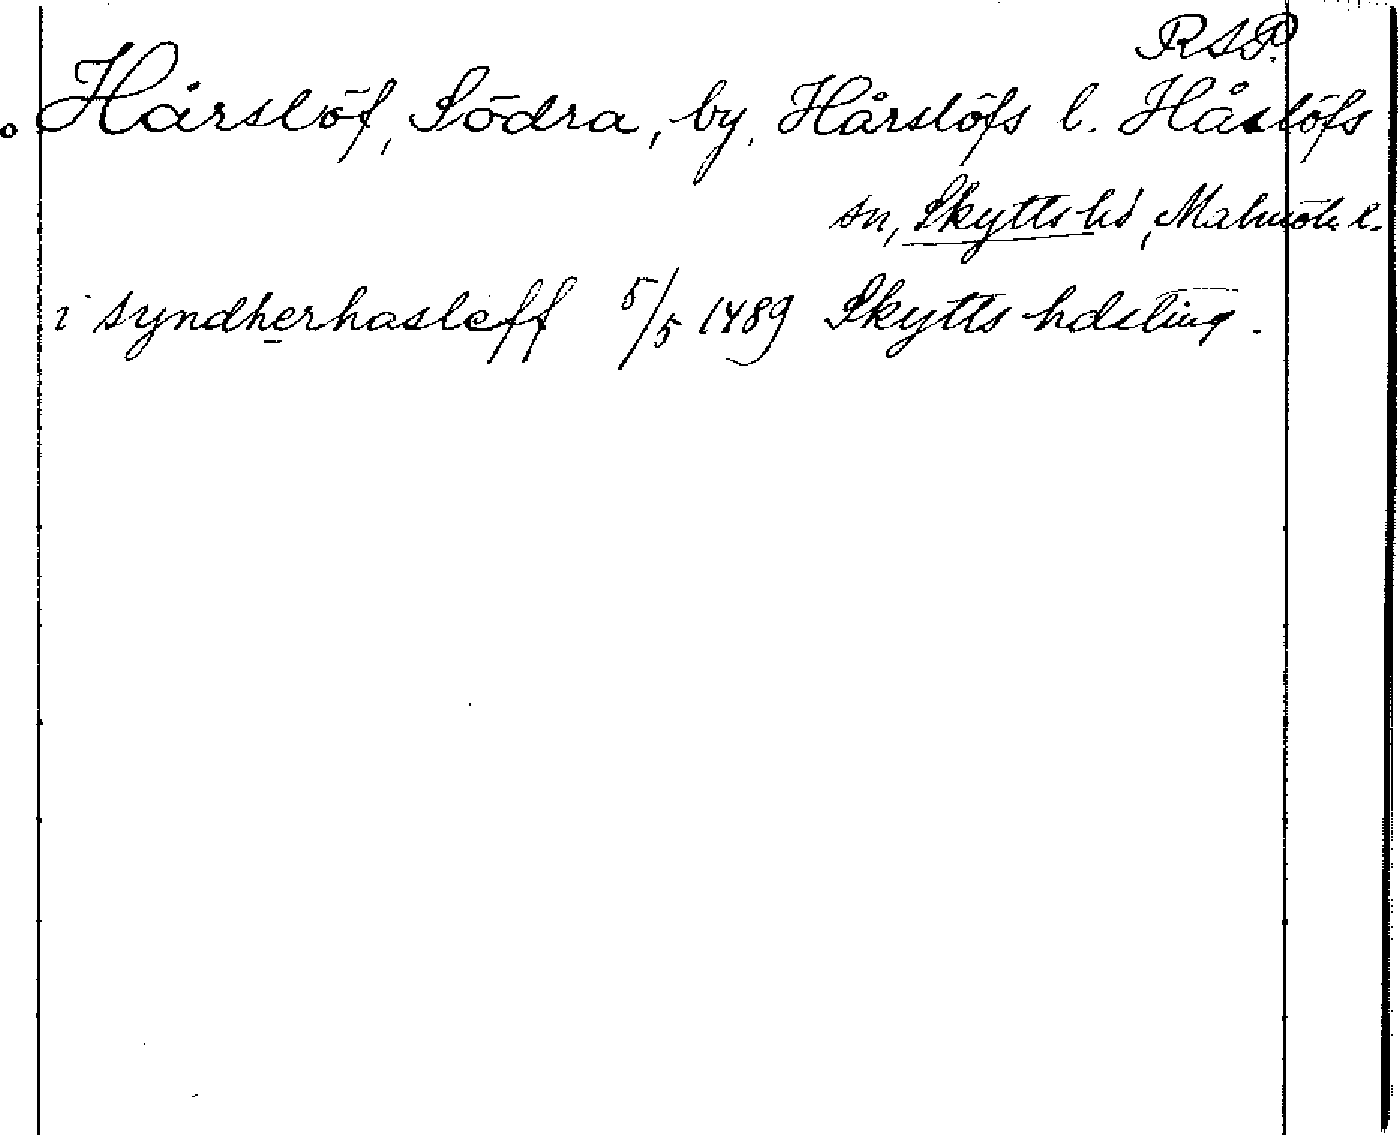 RAP.
Hårslöf, Södra, by, Hårslöfs l. Håslöfs
sn, Skytts hd, Malmöh. l.
i syndherhasleff 5/5 1489 Skytts hdsting.